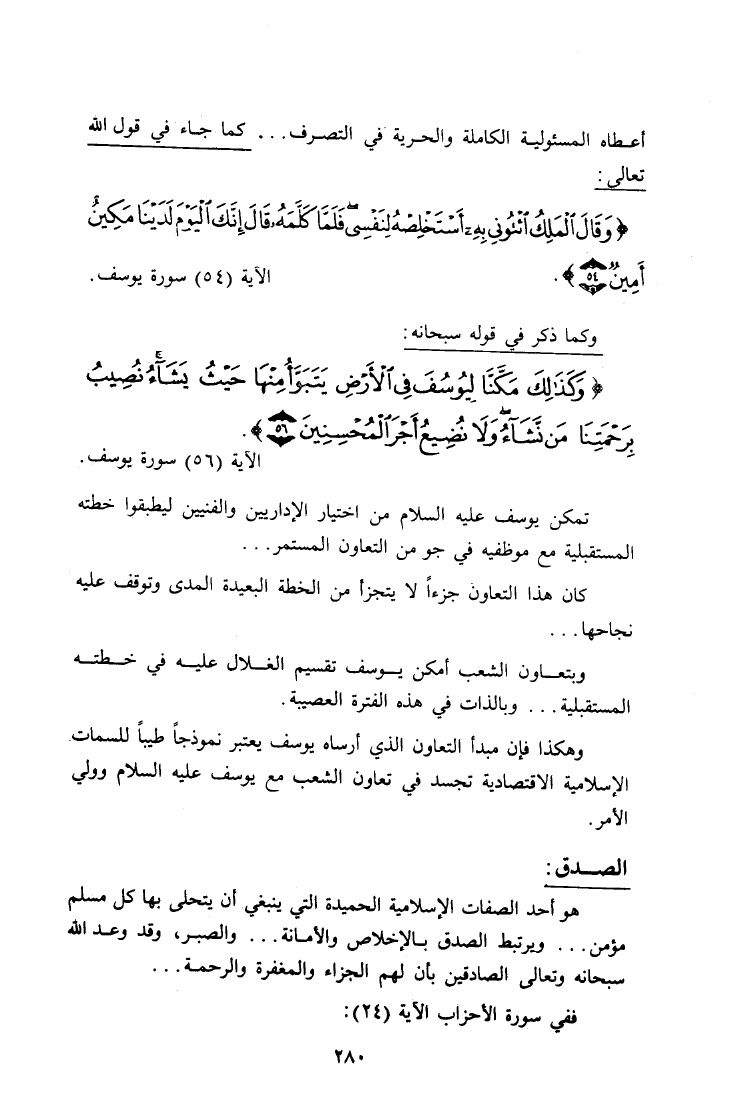 أعطاه المسئولية الكاملة والحرية في التصرف... كما جاء في قول الله
تعالى:
﴿ وَقَالَ ٱلْمَلِكُ ٱئْتُونِي بِهِۦٓ أَسْتَخْلِصْهُ لِنَفْسِىۖ فَلَمَّا كَلَّمَهُۥ قَالَ إِنَّكَ ٱلْيَوْمَ لَدَيْنَا مَكِينٌ
أَمِينٌ ٥٤ ﴾.
الآية (٥٤) سورة يوسف.
وكما ذكر في قوله سبحانه:
﴿ وَكَذَٰلِكَ مَكَّنَّا لِيُوسُفَ فِى ٱلْأَرْضِ يَتَبَوَّأُ مِنْهَا حَيْثُ يَشَآءُۚ نُصِيبُ
بِرَحْمَتِنَا مَن نَّشَآءُۖ وَلَا نُضِيعُ أَجْرَ ٱلْمُحْسِنِينَ ٥٦ ﴾.
الآية (٥٦) سورة يوسف.
تمكن يوسف عليه السلام من اختيار الإداريين والفنيين ليطبقوا خطته
المستقبلية مع موظفيه في جو من التعاون المستمر...
كان هذا التعاون جزءاً لا يتجزأ من الخطة البعيدة المدى وتوقف عليه
نجاحها...
وبتعاون الشعب أمكن يوسف تقسيم الغلال عليه في خطته
المستقبلية... وبالذات في هذه الفترة العصيبة.
وهكذا فإن مبدأ التعاون الذي أرساه يوسف يعتبر نموذجاً طيباً للسمات
الإسلامية الاقتصادية تجسد في تعاون الشعب مع يوسف عليه السلام وولي
الأمر.
الصدق:
هو أحد الصفات الإسلامية الحميدة التي ينبغي أن يتحلى بها كل مسلم
مؤمن... ويرتبط الصدق بالإخلاص والأمانة... والصبر، وقد وعد الله
سبحانه وتعالى الصادقين بأن لهم الجزاء والمغفرة والرحمة...
ففي سورة الأحزاب الآية (٢٤):
٢٨٠